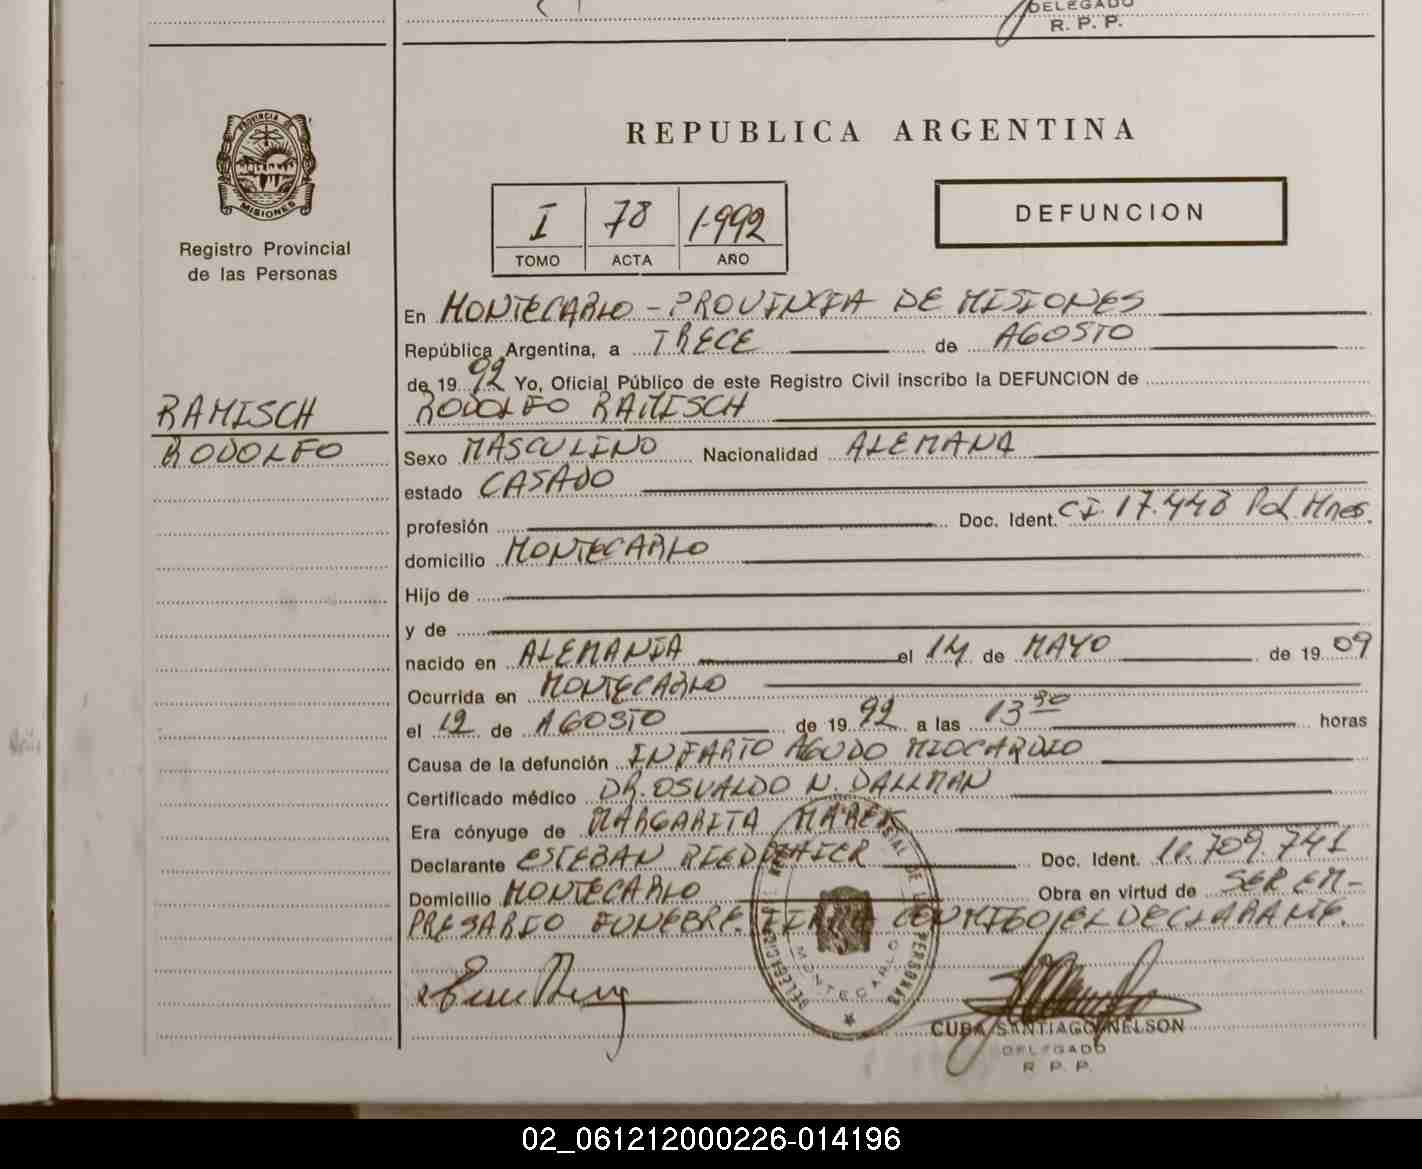 DELEGADO
R. P. P.
PROVINCIA DE
MISIONES
Registro Provincial
de las Personas
REPUBLICA ARGENTINA
I 78 1.992
TOMO ACTA AÑO
DEFUNCION
En MONTECARLO - PROVINCIA DE MISIONES
República Argentina, a TRECE de AGOSTO
de 19 92 Yo, Oficial Público de este Registro Civil inscribo la DEFUNCION de
RAMISCH
RODOLFO
RODOLFO RAMISCH
Sexo MASCULINO Nacionalidad ALEMANA
estado CASADO
profesión Doc. Ident. CI. 17.448 Pol. Mnes.
domicilio MONTECARLO
Hijo de
y de
nacido en ALEMANIA el 14 de MAYO de 19 09
Ocurrida en MONTECARLO
el 12 de AGOSTO de 19 92 a las 13 30 horas
Causa de la defunción INFARTO AGUDO MIOCARDIO
Certificado médico DR. OSVALDO N. DALLMAN
Era cónyuge de MARGARITA MAREK
Declarante ESTEBAN Doc. Ident. 709.741
Domicilio MONTECARLO Obra en virtud de SER EM-
PRESARIO FUNEBRE. FIRMA CONMIGO EL DECLARANTE.
MONTECARLO
CUBA SANTIAGO NELSON
DELEGADO
R. P. P.
02_061212000226-014196